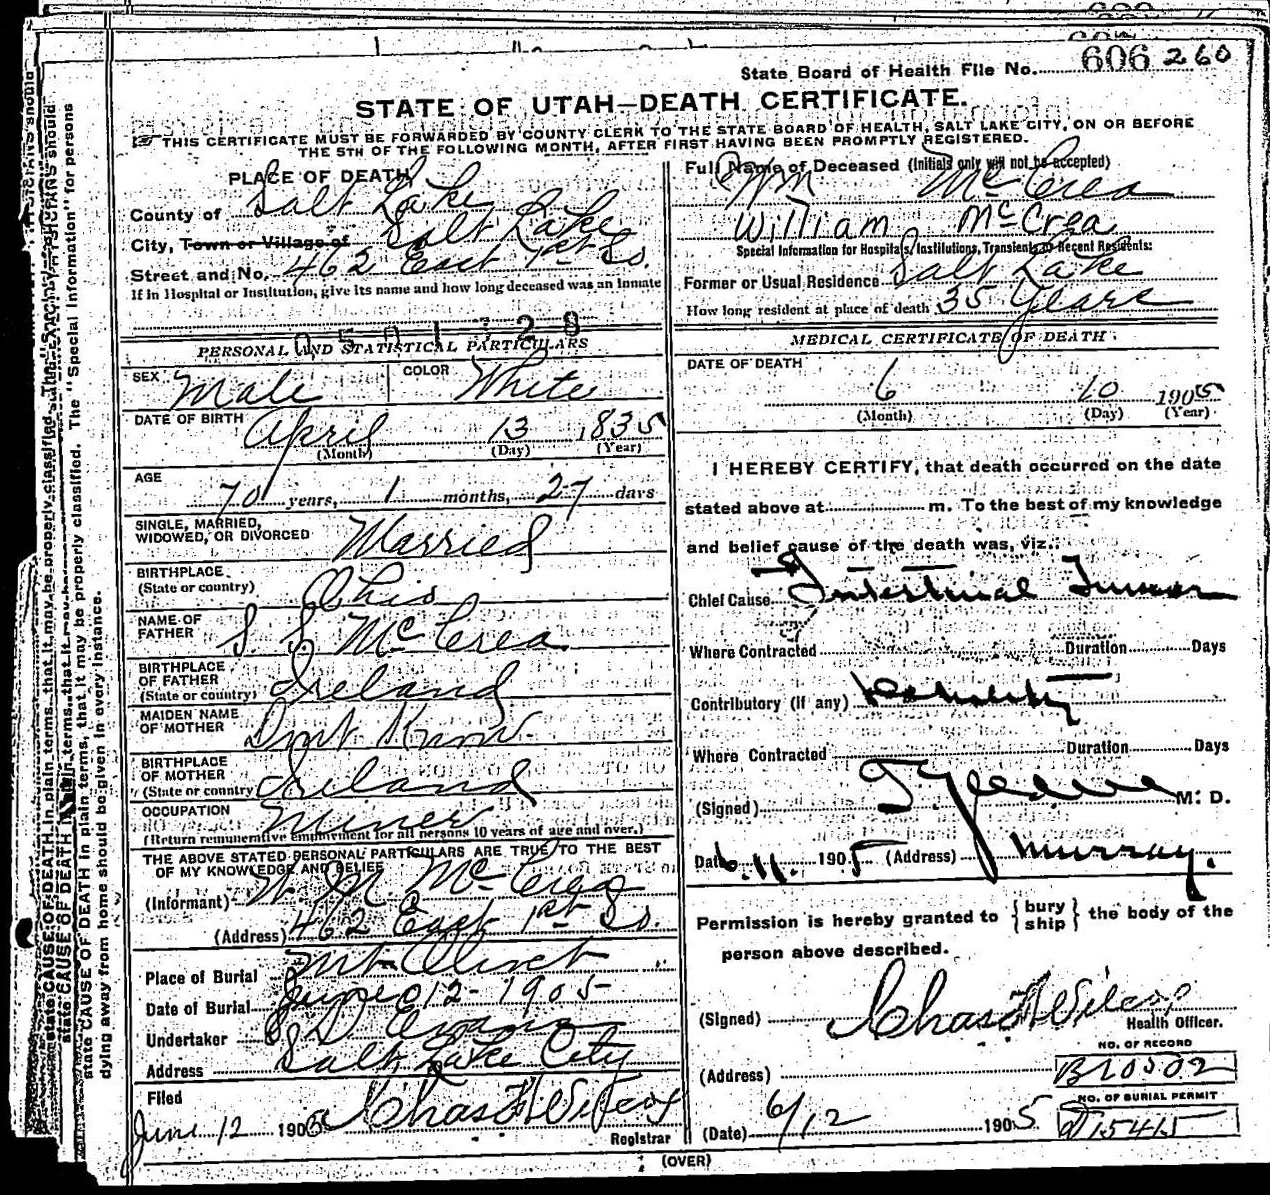 State Board of Health File No. 606 260
STATE OF UTAH—DEATH CERTIFICATE.
THIS CERTIFICATE MUST BE FORWARDED BY COUNTY CLERK TO THE STATE BOARD OF HEALTH, SALT LAKE CITY, ON OR BEFORE
THE 5TH OF THE FOLLOWING MONTH, AFTER FIRST HAVING BEEN PROMPTLY REGISTERED.
PLACE OF DEATH
County of Salt Lake
City, Town or Village of Salt Lake
Street and No. 462 East 1st So.
If in Hospital or Institution, give its name and how long deceased was an inmate
0501728
PERSONAL AND STATISTICAL PARTICULARS
SEX Male COLOR White
DATE OF BIRTH April 13 1835
(Month) (Day) (Year)
AGE
70 years, 1 months, 27 days
SINGLE, MARRIED,
WIDOWED, OR DIVORCED Married
BIRTHPLACE
(State or country) Ohio
NAME OF
FATHER S. S. McCrea
BIRTHPLACE
OF FATHER
(State or country) Ireland
MAIDEN NAME
OF MOTHER Dont Know
BIRTHPLACE
OF MOTHER
(State or country) Ireland
OCCUPATION Miner
(Return remunerative employment for all persons 10 years of age and over.)
THE ABOVE STATED PERSONAL PARTICULARS ARE TRUE TO THE BEST
OF MY KNOWLEDGE AND BELIEF
(Informant) W. M. McCrea
(Address) 462 East 1st So.
Place of Burial Mt Olivet
Date of Burial June 12-1905
Undertaker S. D. Evans
Address Salt Lake City
Filed
June 12 1905 Chas F Wilcox
Registrar
Full Name of Deceased (Initials only will not be accepted)
Wm McCrea
William McCrea
Special Information for Hospitals, Institutions, Transients or Recent Residents:
Former or Usual Residence Salt Lake
How long resident at place of death 35 Years
MEDICAL CERTIFICATE OF DEATH
DATE OF DEATH
6 10 1905
(Month) (Day) (Year)
I HEREBY CERTIFY, that death occurred on the date
stated above at m. To the best of my knowledge
and belief cause of the death was, viz.:
Chief Cause Intestinal Tumor
Where Contracted Duration Days
Contributory (if any)
Where Contracted Duration Days
(Signed) M. D.
Date 6.11. 1905 (Address) Murray.
Permission is hereby granted to {bury
ship} the body of the
person above described.
(Signed) Chas F Wilcox
Health Officer.
NO. OF RECORD
(Address) B10502
NO. OF BURIAL PERMIT
(Date) 6/12 1905. D15415
(OVER)
state CAUSE OF DEATH in plain terms, that it may be properly classified. The "Special Information" for persons
dying away from home should be given in every instance.